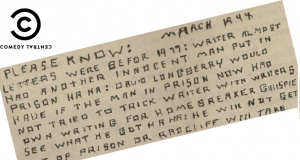 COMEDY
CENTRAL
MARCH 1848
PLEASE KNOW:
LETTERS WERE BEFOR 1977: WRITER ALMOST
HAD ANOTHER INNOCENT MAN PUT IN
PRISON HA HA: DAVID LONGBERRY WOULD
HAVE IF THE MAN IN PRISON NOW HAD
NOT TRIED TO TRICK WRITER WITH WRITERS
OWN WRITING FOR HOMEBREAKER GILLISPIE
SEE WHAT HE GOT HA HA: HE WILL NOT GET
OF PRISON OR RADCLIFF WILL TAKE